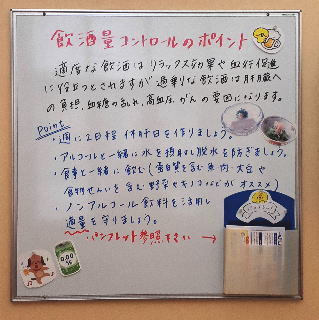 飲酒量コントロールのポイント
適度な飲酒はリラックス効果や血行促進
に役立つとされますが過剰な飲酒は肝臓
への負担、血糖の乱れ、高血圧、がんの要因になります。
Point
・週に2日程 休肝日を作りましょう。
・アルコールと一緒に水を摂取し脱水を防ぎましょう。
・食事と一緒に飲む(蛋白質を含む魚・肉・大豆や
食物せんいを含む野菜やキノコなどがオススメ)
・ノンアルコール飲料を活用し
適量を守りましょう。
パンフレット参照下さい →
0.00%